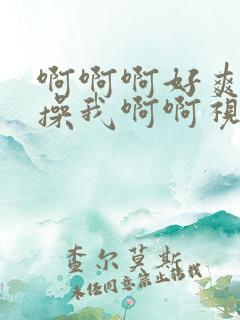 啊啊啊好爽
操我啊啊视
查尔莫斯
未经同意禁止转载